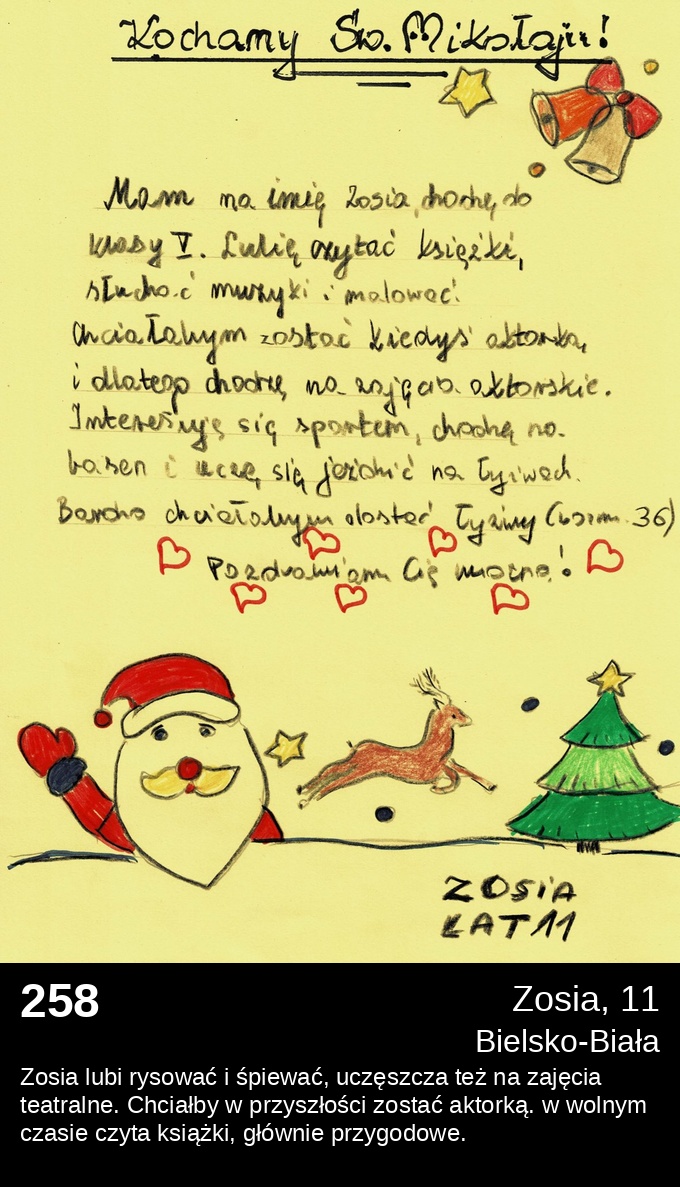 Kochamy Św. Mikołaju!
Mam na imię Zosia, chodzę do
klasy V. Lubię czytać książki,
słuchać muzyki i malować.
Chciałabym zostać kiedyś aktorką,
i dlatego chodzę na zajęcia aktorskie.
Interesuję się sportem, chodzę na
basen i uczę się jeździć na łyżwach.
Bardzo chciałabym dostać łyżwy (rozm. 36)
Pozdrawiam Cię mocno!
ZOSIA
LAT 11
258
Zosia, 11
Bielsko-Biała
Zosia lubi rysować i śpiewać, uczęszcza też na zajęcia
teatralne. Chciałby w przyszłości zostać aktorką. w wolnym
czasie czyta książki, głównie przygodowe.